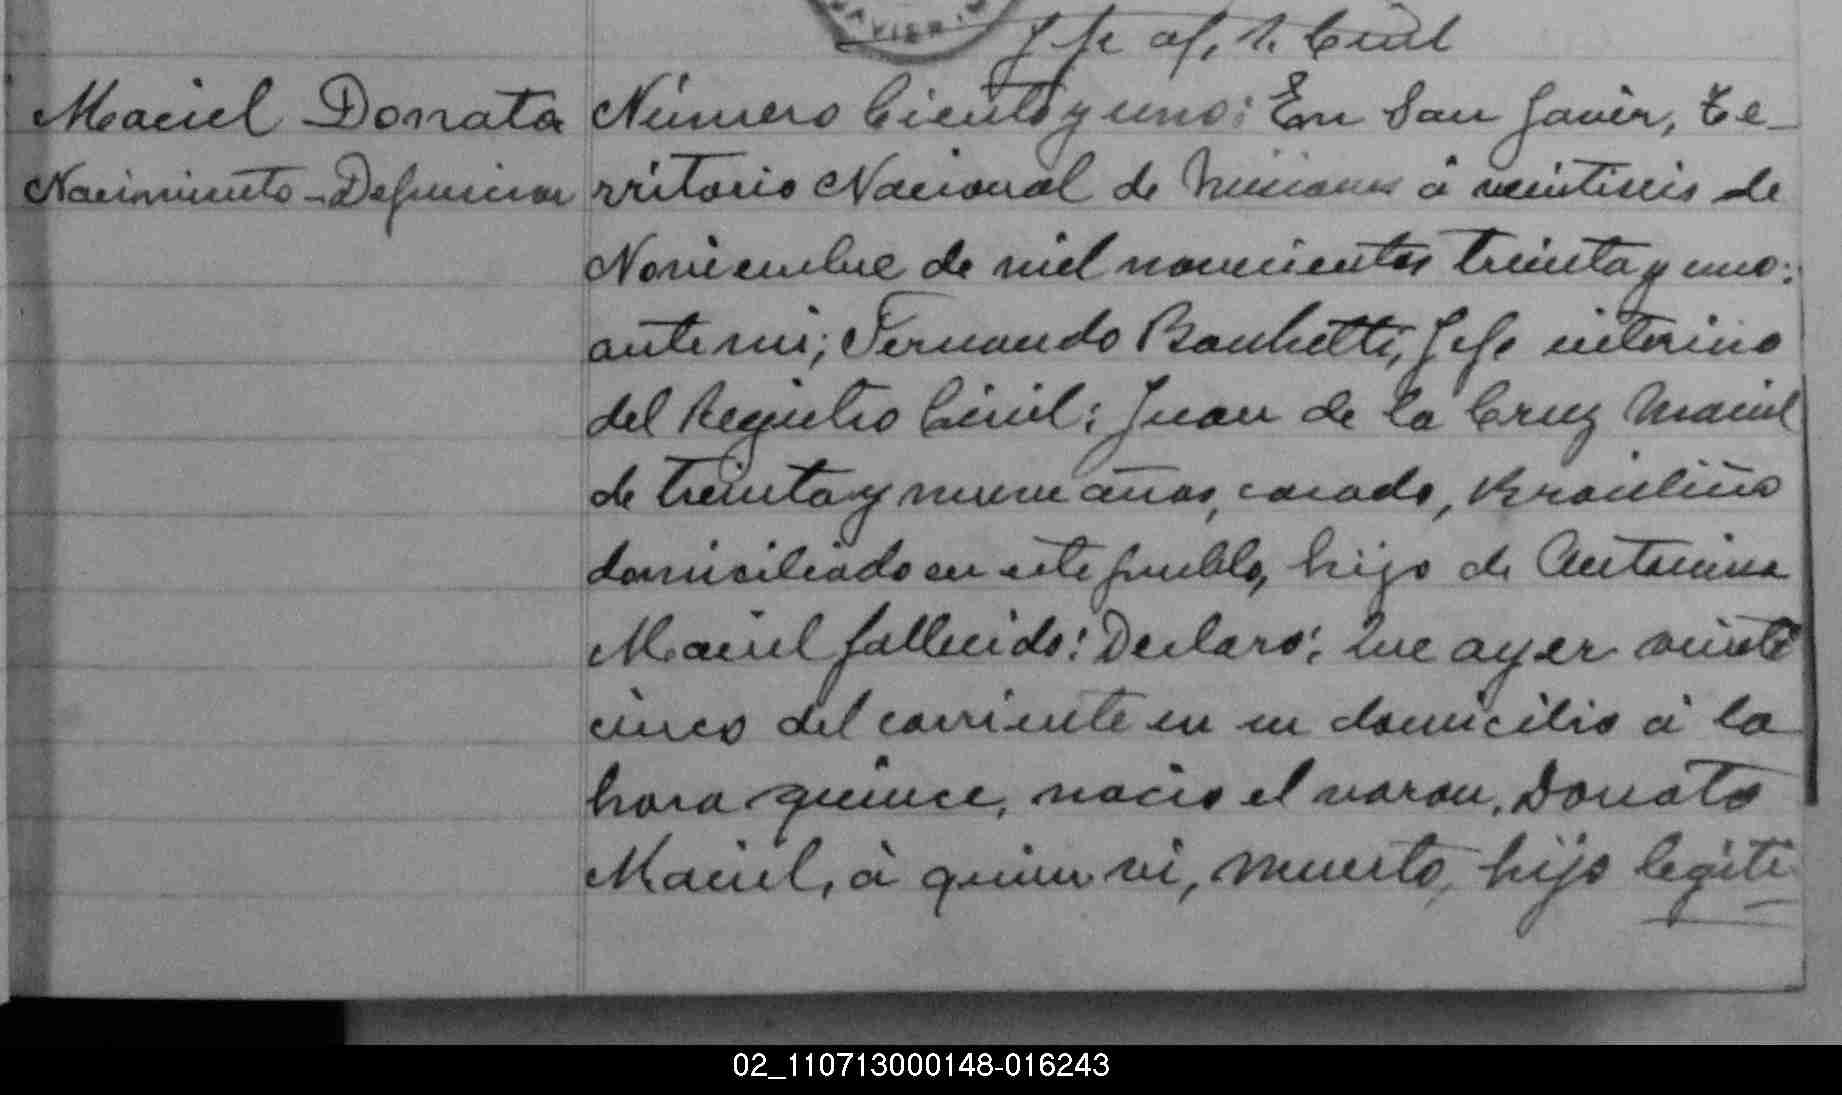 AVIER
Jefe of. R. Civil
Maciel Donato
Nacimiento-Defuncion
Número Ciento y uno: En San Javier, Te-
rritorio Nacional de Misiones á veintiseis de
Noviembre de mil novecientos treinta y uno:
ante mi; Fernando Jefe interino
del Registro Civil; Juan de la Cruz Maciel
de treinta y nueve años, casado, Brasileño
domiciliado en este pueblo, hijo de
Maciel fallecido: Declaro: Que ayer veinte
cinco del corriente en su domicilio á la
hora quince, nacio el varon, Donato
Maciel, á quien vi, muerto, hijo legiti
02_110713000148-016243